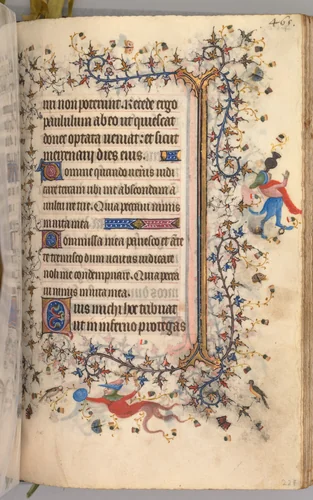 465.
rii non poterunt. Recede ergo
paululum ab eo ut quiescat
donec optata veniat: et sicut
mercenarij dies eius.
Domine quando veneris iudi
care terram ubi me abscondam a
vultu ire tue. Quia peccavi nimis
in vita mea.
Commissa mea pavesco et ante
te erubesco dum veneris iudicare
noli me condempnare. Quia pecca
vi nimis in vita mea.
Quis michi hoc tribuat
ut in inferno protegas